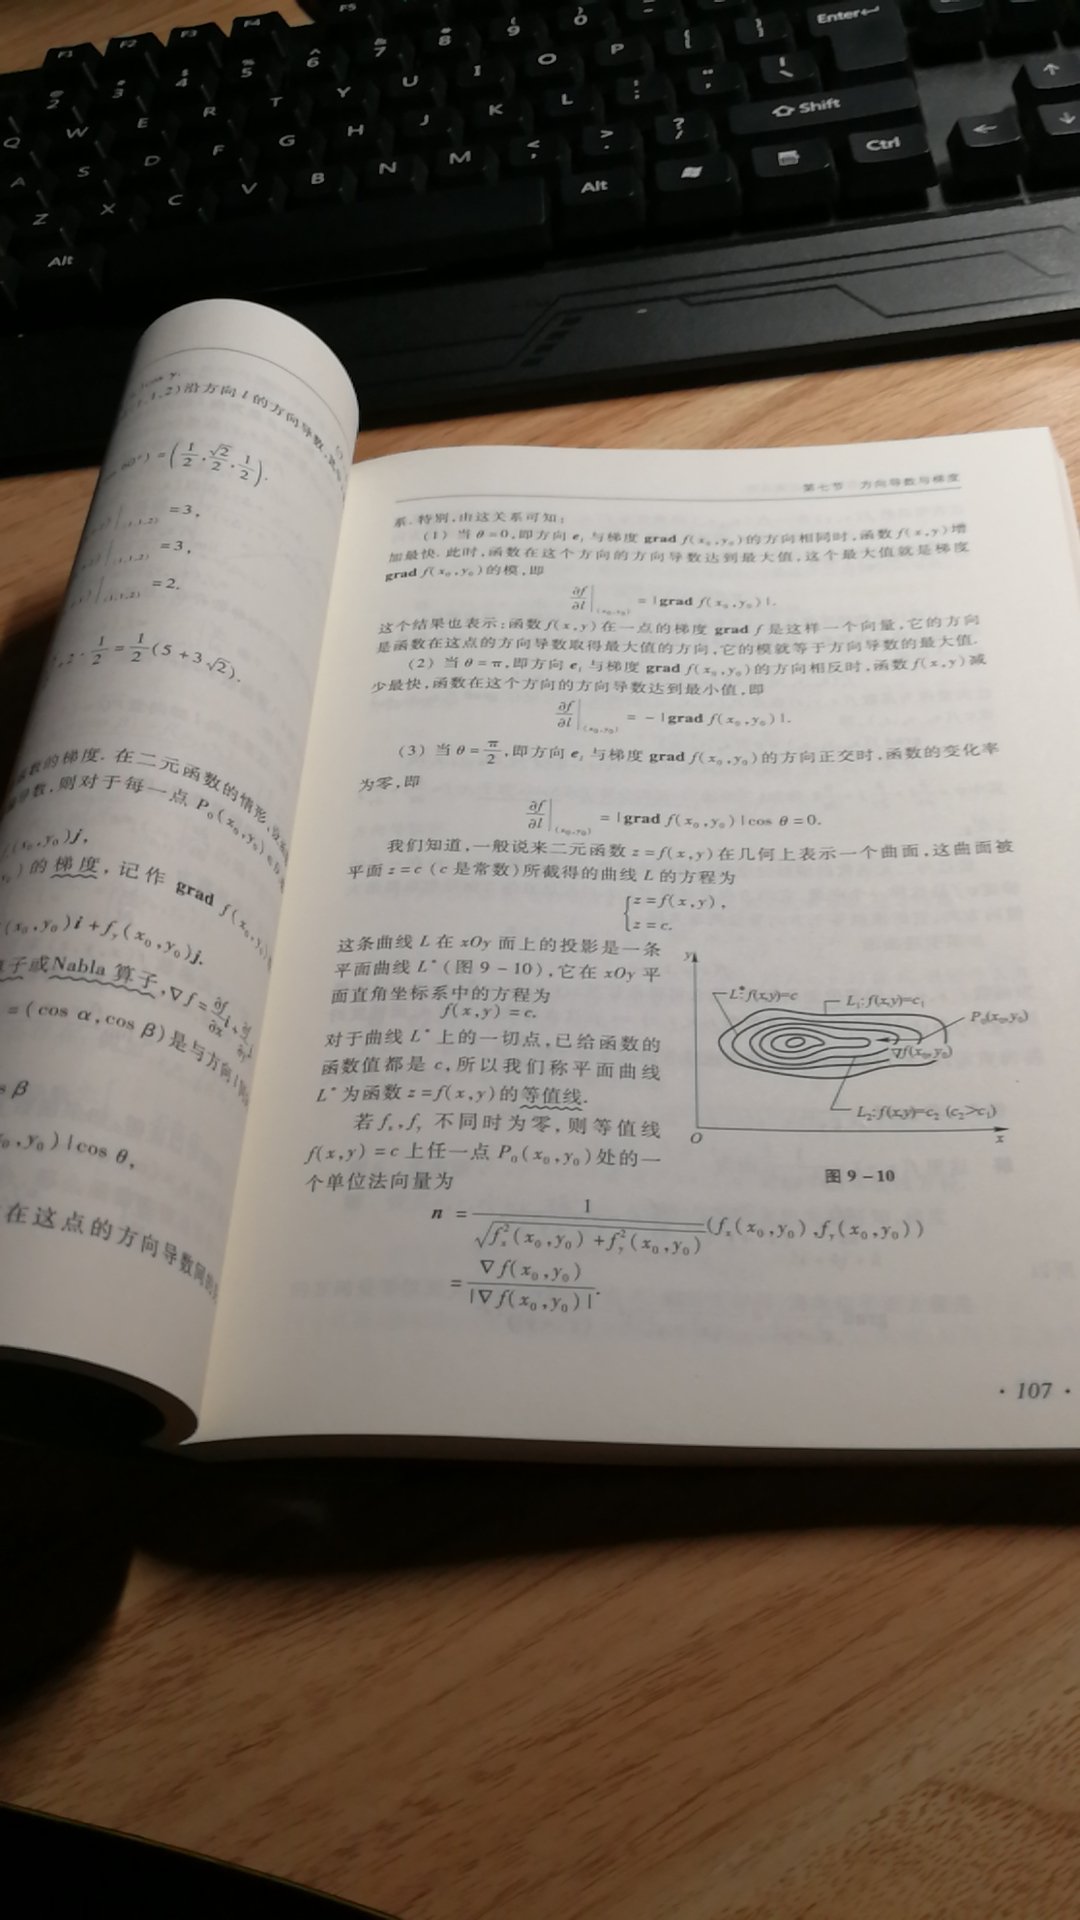 F1 F2 F3 F4 F5
2 3 4 5 6 7 8 9 0 Enter
Q W E R T Y U I O P { [ } ]
A S D F G H J K L : ; " ' | \
Z X C V B N M < , > . ? / Shift
Alt Alt Ctrl
沿方向 l 的方向导数,
=(1/2,√2/2,1/2).
=3,
=3,
=2.
·1/2=1/2(5+3√2).
的梯度. 在二元函数的情形,
则对于每一点 P₀(x₀,y₀)
(x₀,y₀)j,
的梯度, 记作 grad f(x₀,y₀)
(x₀,y₀)i+f_y(x₀,y₀)j.
或Nabla 算子,∇f=∂f/∂x i+
=(cos α,cos β)是与方向 l
β
,y₀)|cos θ,
在这点的方向导数
第七节 方向导数与梯度
系. 特别,由这关系可知:
(1) 当 θ=0,即方向 e_l 与梯度 grad f(x₀,y₀)的方向相同时,函数 f(x,y)增
加最快. 此时,函数在这个方向的方向导数达到最大值,这个最大值就是梯度
grad f(x₀,y₀)的模,即
∂f/∂l|(x₀,y₀) = |grad f(x₀,y₀)|.
这个结果也表示:函数 f(x,y)在一点的梯度 grad f 是这样一个向量,它的方向
是函数在这点的方向导数取得最大值的方向,它的模就等于方向导数的最大值.
(2) 当 θ=π,即方向 e_l 与梯度 grad f(x₀,y₀)的方向相反时,函数 f(x,y)减
少最快,函数在这个方向的方向导数达到最小值,即
∂f/∂l|(x₀,y₀) = -|grad f(x₀,y₀)|.
(3) 当 θ=π/2,即方向 e_l 与梯度 grad f(x₀,y₀)的方向正交时,函数的变化率
为零,即
∂f/∂l|(x₀,y₀) = |grad f(x₀,y₀)|cos θ=0.
我们知道,一般说来二元函数 z=f(x,y)在几何上表示一个曲面,这曲面被
平面 z=c (c 是常数)所截得的曲线 L 的方程为
{z=f(x,y),
z=c.
这条曲线 L 在 xOy 面上的投影是一条
平面曲线 L*(图 9-10),它在 xOy 平
面直角坐标系中的方程为
f(x,y)=c.
对于曲线 L* 上的一切点,已给函数的
函数值都是 c,所以我们称平面曲线
L* 为函数 z=f(x,y)的等值线.
若 f_x,f_y 不同时为零,则等值线
f(x,y)=c 上任一点 P₀(x₀,y₀)处的一
个单位法向量为
y
L*:f(x,y)=c
L₁:f(x,y)=c₁
P₀(x₀,y₀)
∇f(x₀,y₀)
L₂:f(x,y)=c₂ (c₂>c₁)
O x
图 9-10
n = 1/√(f_x²(x₀,y₀)+f_y²(x₀,y₀)) (f_x(x₀,y₀),f_y(x₀,y₀))
= ∇f(x₀,y₀)/|∇f(x₀,y₀)|.
· 107 ·